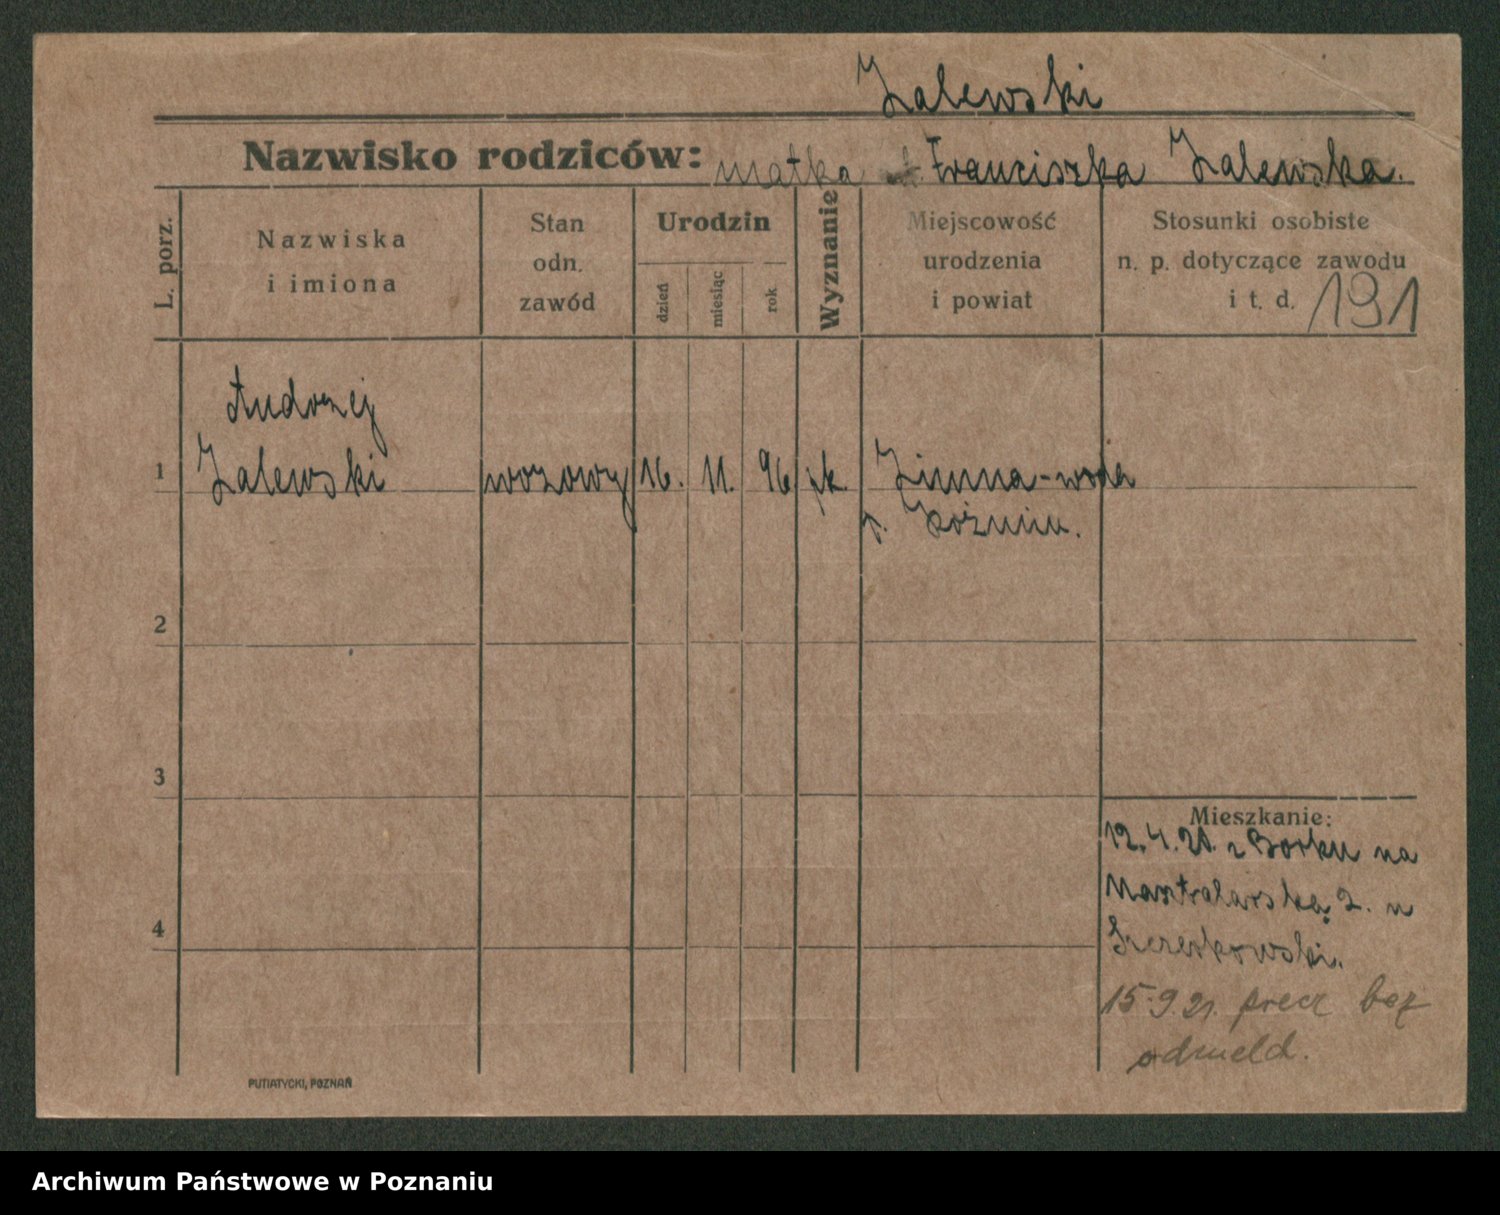 Zalewski
Nazwisko rodziców: matka Franciszka Zalewska.
L. porz.
Nazwiska
i imiona
Stan
odn.
zawód
Urodzin
dzień
miesiąc
rok
Wyznanie
Miejscowość
urodzenia
i powiat
Stosunki osobiste
n. p. dotyczące zawodu
i t. d. 191
Andrzej
1 Zalewski wozowy 16. 11. 96 rk Zimna-woda
p. Koźmin.
2
3
4
Mieszkanie:
12.4.21. z Borku na
Masztalarską 2. u
15.9.21. precz bez
odmeld.
PUTIATYCKI, POZNAŃ
Archiwum Państwowe w Poznaniu